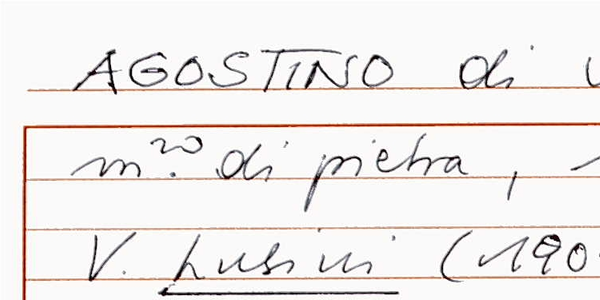 AGOSTINO di
m.ro di pietra,
V. Lusini (190